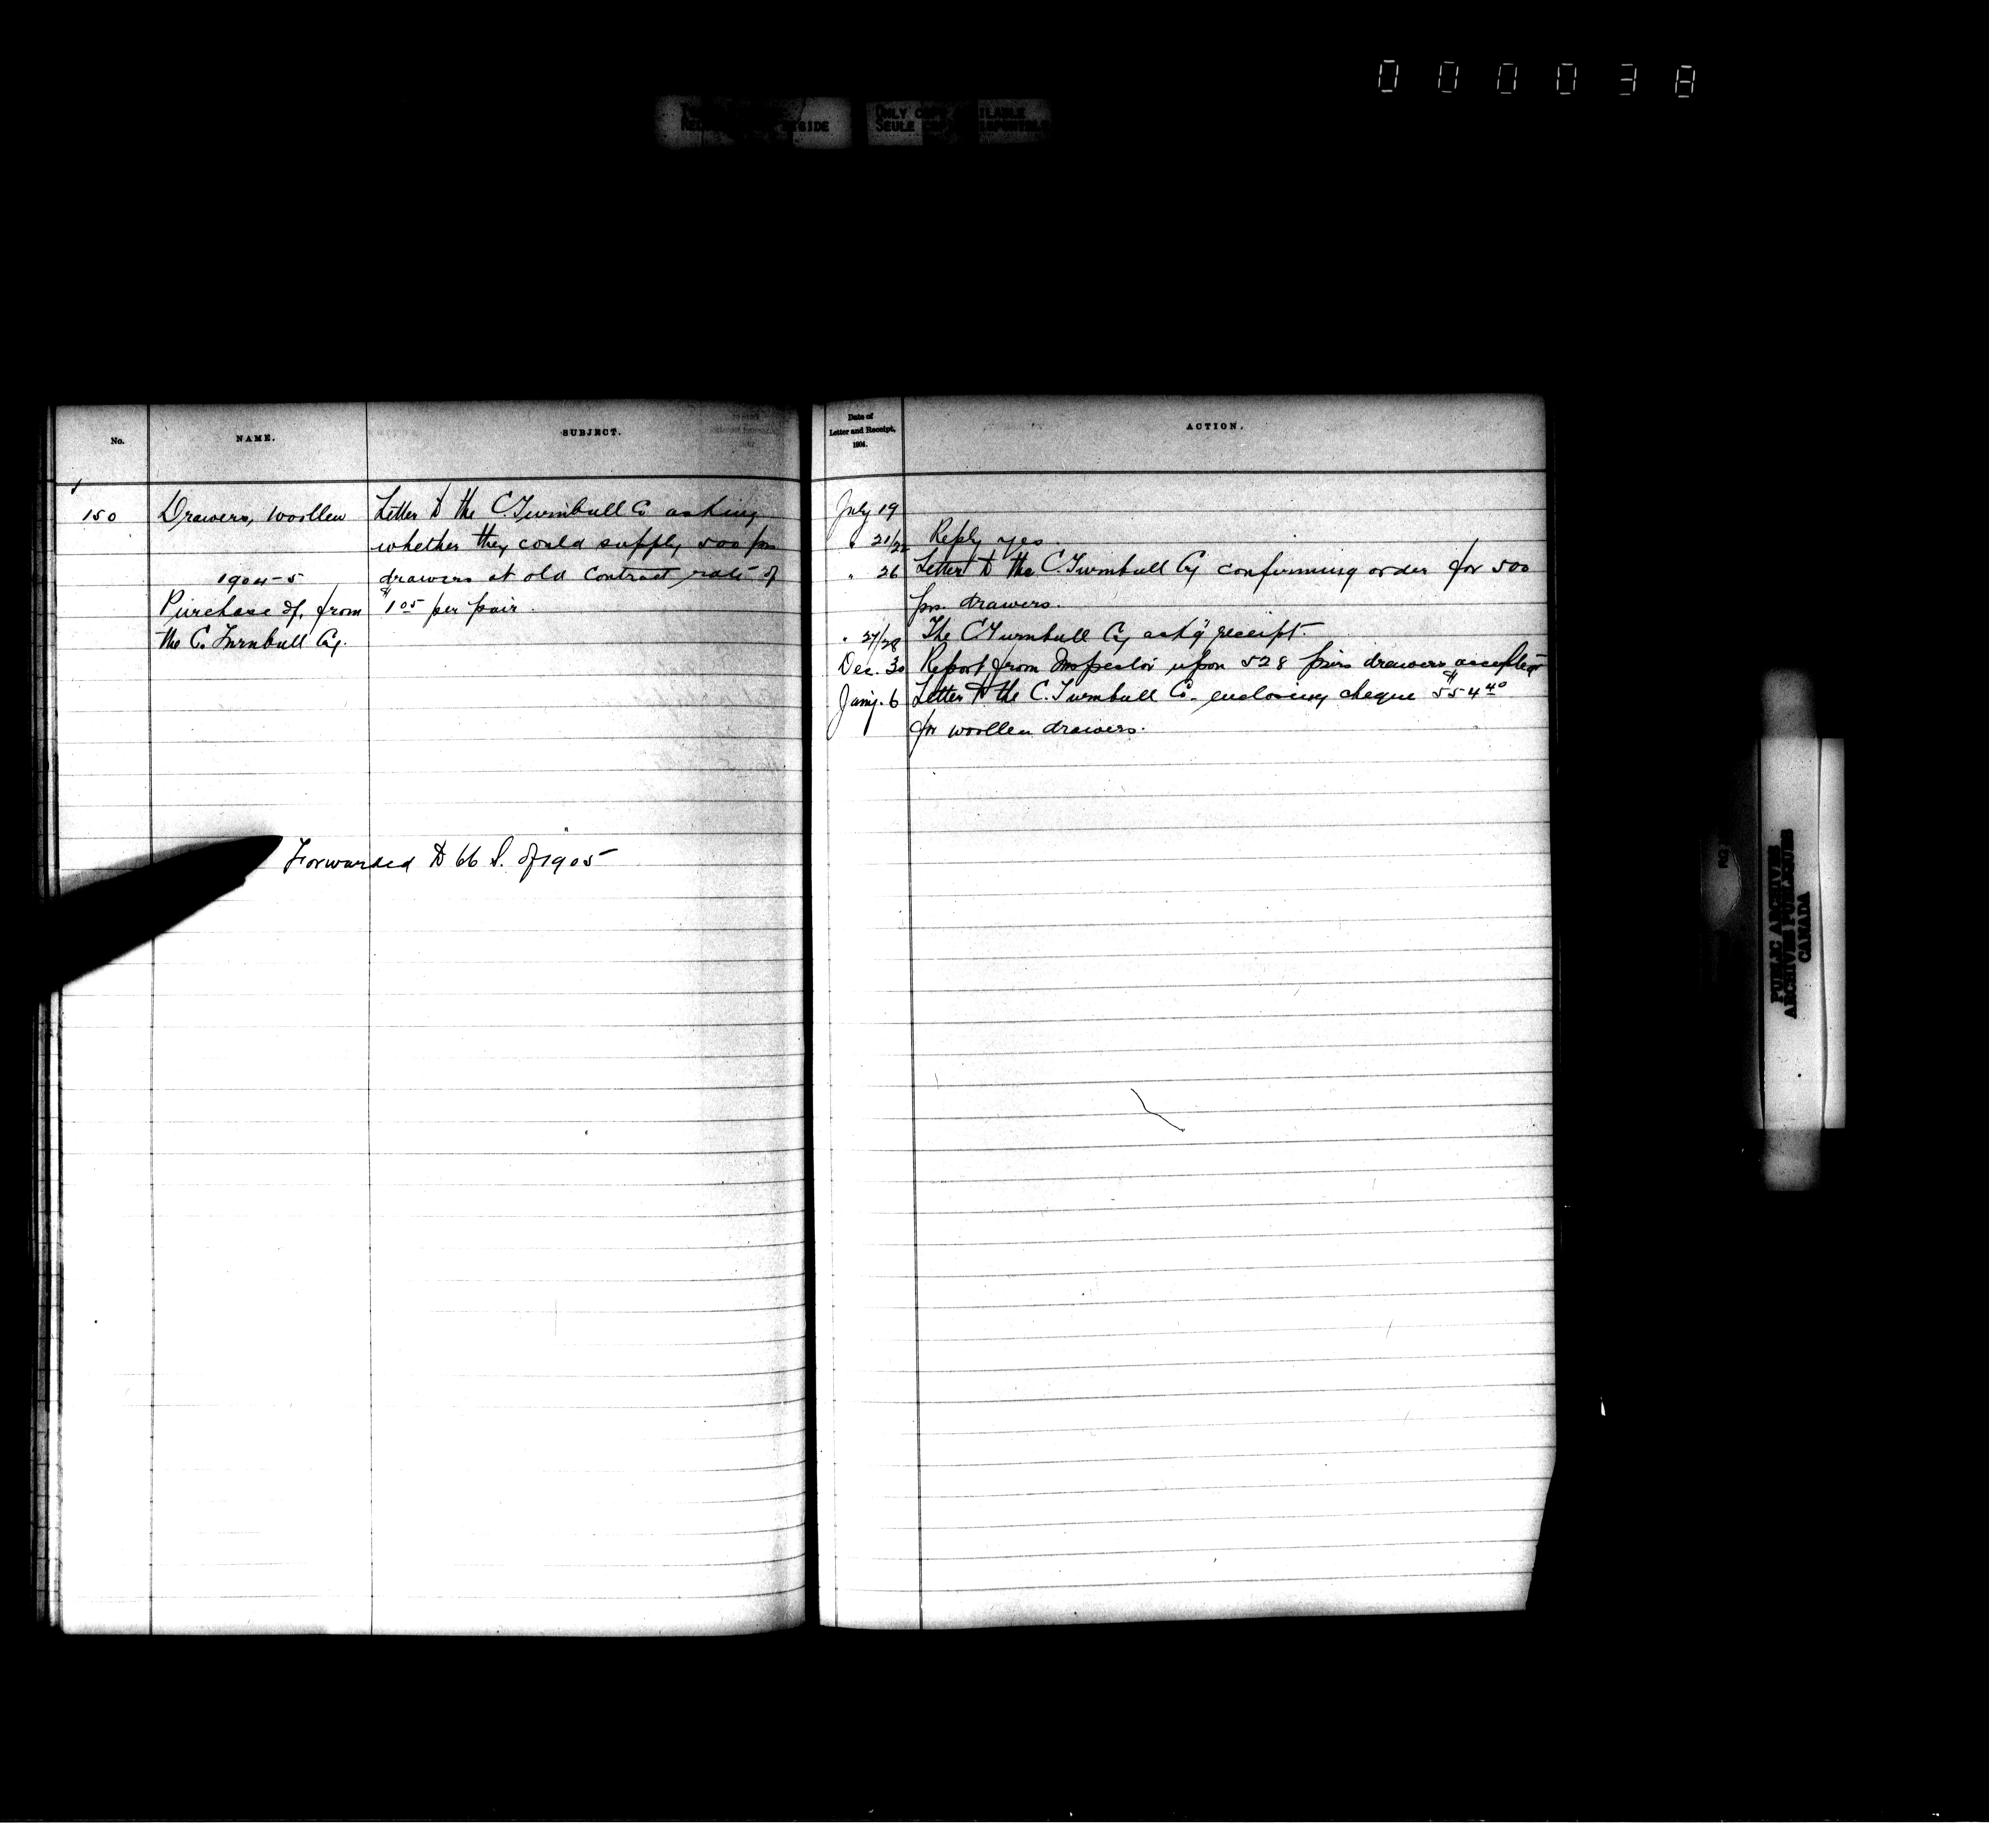 000038
ONLY COPY AVAILABLE
SEULE
No.
NAME.
SUBJECT.
150
Drawers, Woollen
1904-5
Purchase of, from
the C. Turnbull Coy.
Letter to the C. Turnbull Co asking
whether they could supply 500 prs
drawers at old Contract rate of
$1.05 per pair.
Forwarded to 66 S. of 1905
Date of
Letter and Receipt,
1904.
ACTION.
July 19
" 21/22 Reply yes.
" 26 Letter to the C. Turnbull Coy confirming order for 500
prs. drawers.
" 27/28 The C. Turnbull Coy ack'g receipt.
Dec. 30 Report from Inspector upon 528 pairs drawers accepted
Jany. 6 Letter to the C. Turnbull Co. enclosing cheque $554.40
for woollen drawers.
PUBLIC ARCHIVES
ARCHIVES PUBLIQUES
CANADA
RG